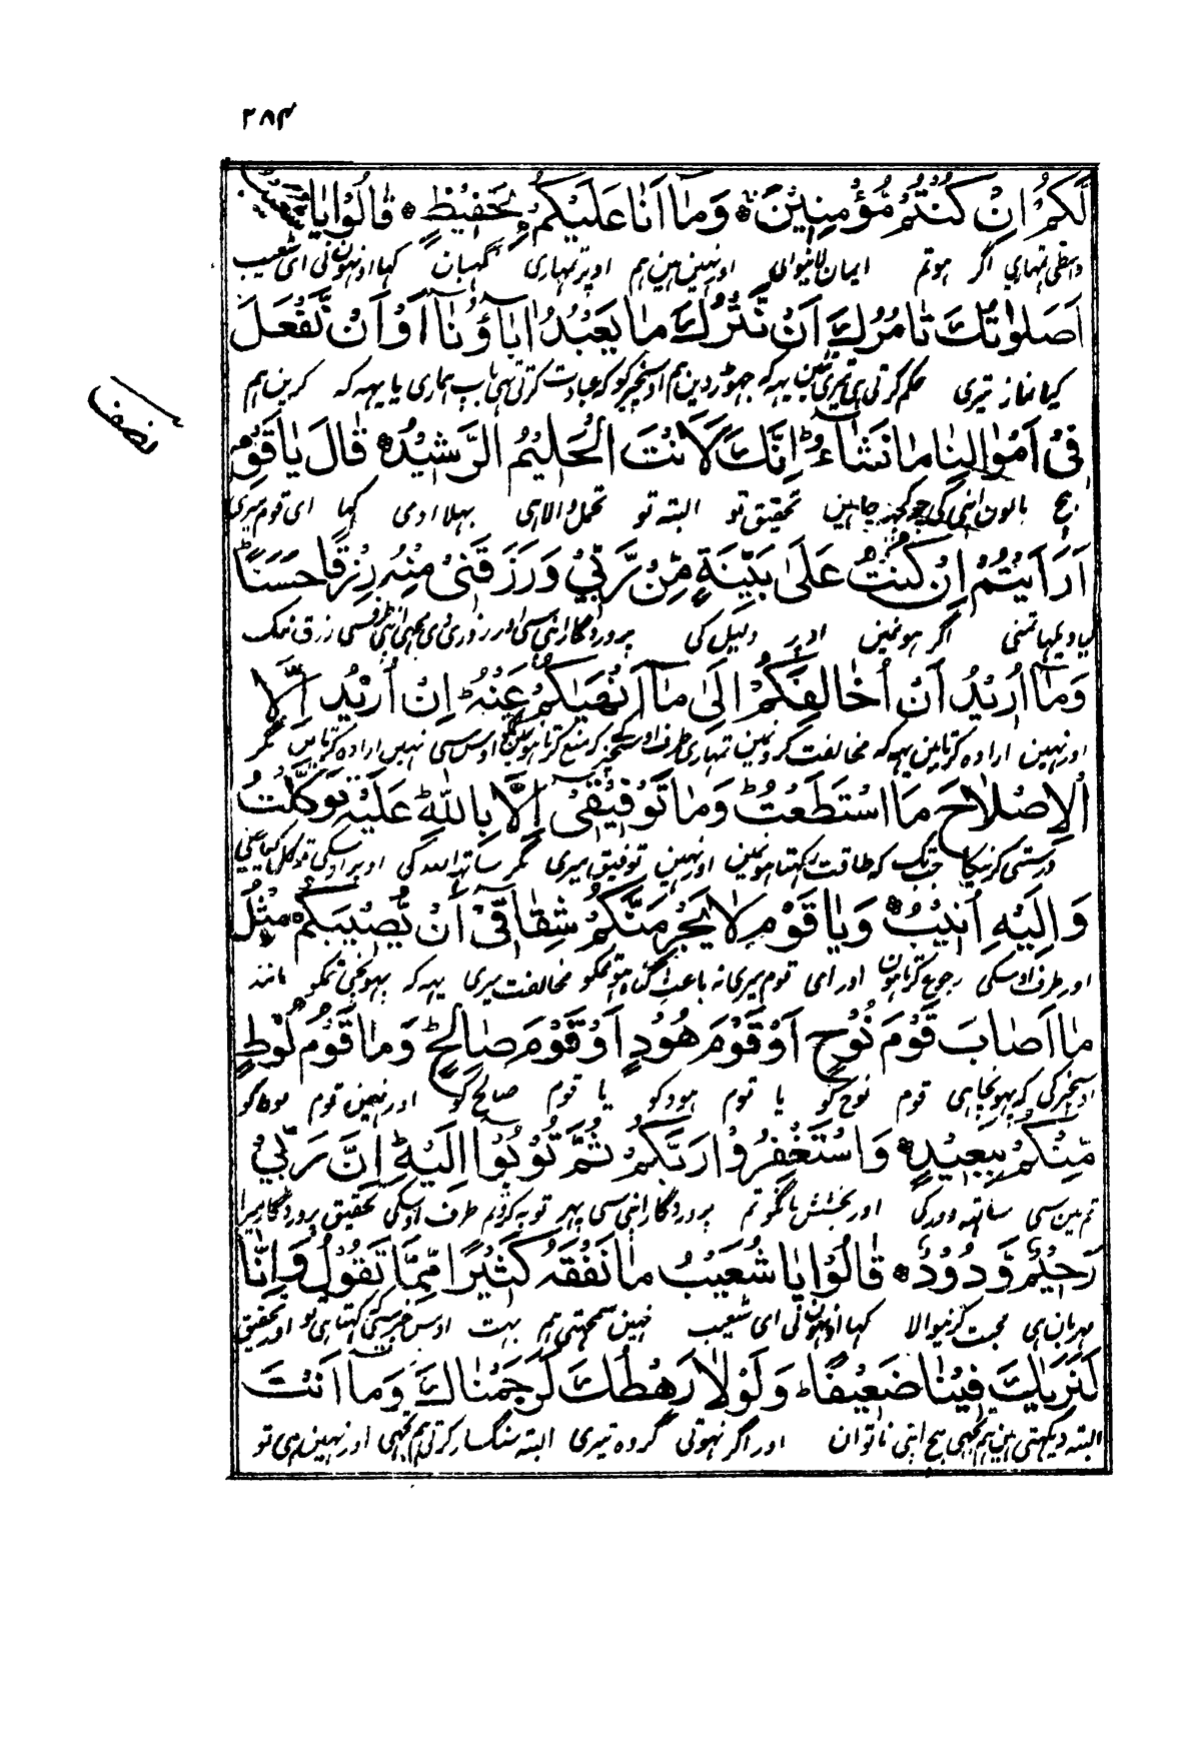 ۲۸۴
لَّكُمْ اِنْ كُنْتُمْ مُّؤْمِنِيْنَ وَمَآ اَنَا عَلَيْكُمْ بِحَفِيْظٍ قَالُوْا يَا شُعَيْبُ
واسطی تمہاری اگر ہو تم ایمان لانیوالی اور نہین ہین ہم اوپر تمہاری نگہبان کہا اونہون نی ای شعیب
اَصَلٰوتُكَ تَامُرُكَ اَنْ نَّتْرُكَ مَا يَعْبُدُ اٰبَآؤُنَآ اَوْ اَنْ نَّفْعَلَ
کیا نماز تیری حکم کرتی ہی تیری تئین یہہ کہ چھوڑ دین ہم اوسچیز کو کہ عبادت کرتی تہی باپ ہماری یا یہہ کہ کرین ہم
نصف
فِىْٓ اَمْوَالِنَا مَا نَشَآءُ اِنَّكَ لَاَنْتَ الْحَلِيْمُ الرَّشِيْدُ قَالَ يَا قَوْمِ
بیچ مالون اپنی کی جو کچہہ چاہین تحقیق تو البتہ تو تحمل والا ہی بہلا ادمی کہا ای قوم میری
اَرَاَيْتُمْ اِنْ كُنْتُ عَلٰى بَيِّنَةٍ مِّنْ رَّبِّيْ وَرَزَقَنِىْ مِنْهُ رِزْقًا حَسَنًا
کیا دیکہا تمنی اگر ہونمین اوپر دلیل کی پروردگار اپنی سی اور روزی دی مجہی اپنی طرفسی رزق نیک
وَمَآ اُرِيْدُ اَنْ اُخَالِفَكُمْ اِلٰى مَآ اَنْهٰىكُمْ عَنْهُ اِنْ اُرِيْدُ اِلَّا
اور نہین ارادہ کرتا مین یہہ کہ مخالفت کرونمین تمہاری طرف اوسچیز کے کہ منع کرتا ہون تمکو اوس سی نہین ارادہ کرتا مین مگر
الْاِصْلَاحَ مَا اسْتَطَعْتُ وَمَا تَوْفِيْقِىْٓ اِلَّا بِاللّٰهِ عَلَيْهِ تَوَكَّلْتُ
درستی کرنیکا جبتک کہ طاقت رکہتا ہونمین اور نہین توفیق میری مگر ساتہہ اللہ کی اوپر اوسکی توکل کیا مینی
وَاِلَيْهِ اُنِيْبُ وَيَا قَوْمِ لَا يَجْرِمَنَّكُمْ شِقَاقِىْٓ اَنْ يُّصِيْبَكُمْ مِّثْلُ
اور طرف اوسکی رجوع کرتا ہون اور ای قوم میری نہ باعث ہو تمکو مخالفت میری یہہ کہ پہونچی تمکو مانند
مَآ اَصَابَ قَوْمَ نُوْحٍ اَوْ قَوْمَ هُوْدٍ اَوْ قَوْمَ صَالِحٍ وَمَا قَوْمُ لُوْطٍ
اوسچیز کی کہ پہونچا ہی قوم نوح کو یا قوم ہود کو یا قوم صالح کو اور نہین قوم لوط کو
مِّنْكُمْ بِبَعِيْدٍ وَاسْتَغْفِرُوْا رَبَّكُمْ ثُمَّ تُوْبُوْٓا اِلَيْهِ اِنَّ رَبِّيْ
تم مین سی ساتہہ دور کی اور بخشش مانگو تم پروردگار اپنی سی پہر توبہ کرو تم طرف اوسکی تحقیق پروردگار میرا
رَحِيْمٌ وَّدُوْدٌ قَالُوْا يَا شُعَيْبُ مَا نَفْقَهُ كَثِيْرًا مِّمَّا تَقُوْلُ وَاِنَّا
مہربان ہی محبت کرنیوالا کہا اونہون نی ای شعیب نہین سمجہتی ہم بہت اوس چیز سی کہ کہتا ہی تو اور تحقیق
لَنَرٰىكَ فِيْنَا ضَعِيْفًا وَلَوْلَا رَهْطُكَ لَرَجَمْنَاكَ وَمَآ اَنْتَ
البتہ دیکہتی ہین ہم تجہی بیچ اپنی ناتوان اور اگر نہوتی گروہ تیری البتہ سنگسار کرتی ہم تجہی اور نہین ہی تو